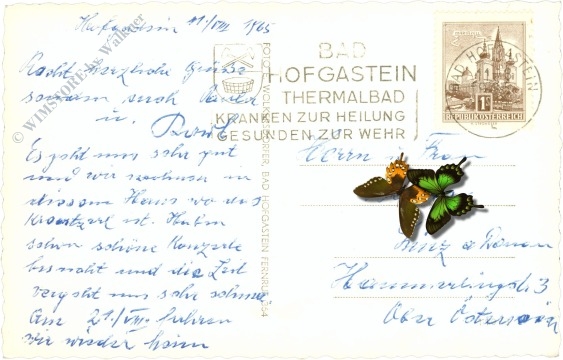 Hofgastein 11/VIII 1965
Recht herzliche Grüsse
senden euch
u.
Es geht uns sehr gut
und wir wohnen in
diesem Haus wo das
ist. Haben
schon schöne Konzerte
besucht und die Zeit
vergeht uns sehr schnell
Am 21/VIII fahren
wir wieder heim
© WIMSTORE by Walkner
FOTO WOLKERSDORFER, BAD HOFGASTEIN FERNRUF 254
BAD
HOFGASTEIN
THERMALBAD
KRANKEN ZUR HEILUNG
GESUNDEN ZUR WEHR
BAD HOFGASTEIN
1S
REPUBLIK ÖSTERREICH
Herrn u Frau
Linz a Donau
Hammerlingstr 3
Ober Österreich